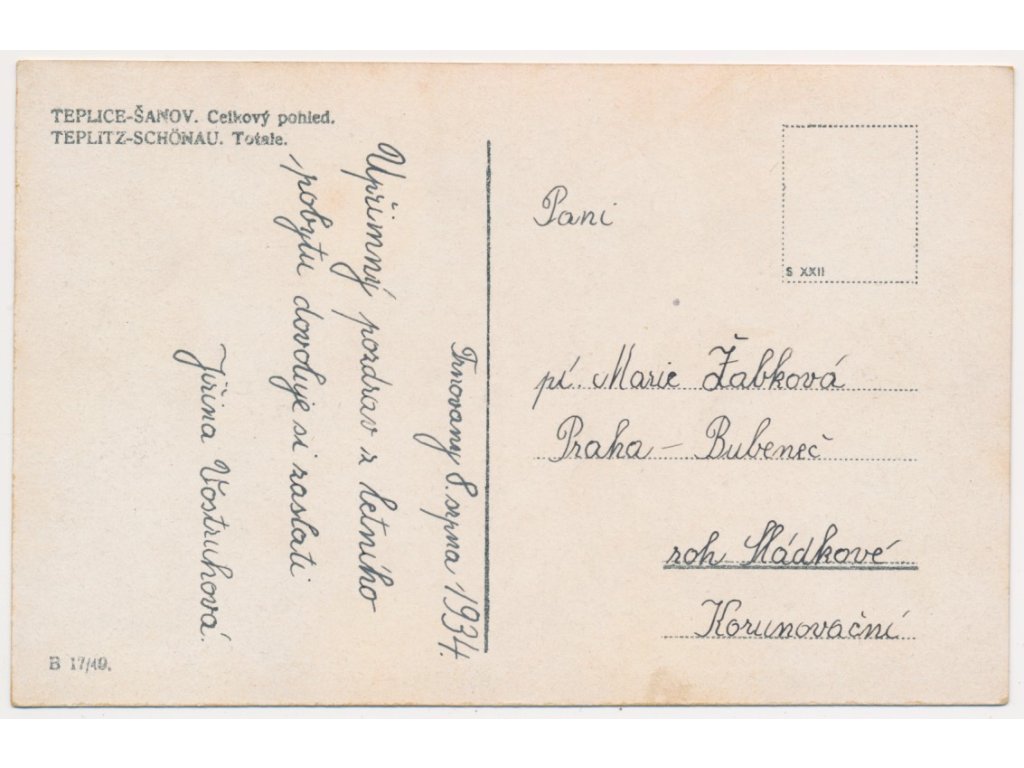 TEPLICE-ŠANOV. Celkový pohled.
TEPLITZ-SCHÖNAU. Totale.
Trnovany 8. srpna 1934.
Upřimný pozdrav z letního
pobytu dovoluje si zaslati
Jiřina Vostruhová.
B 17/49.
S XXII
Pani
pí. Marie Žabková
Praha – Bubeneč
roh Sládkové
Korunovační